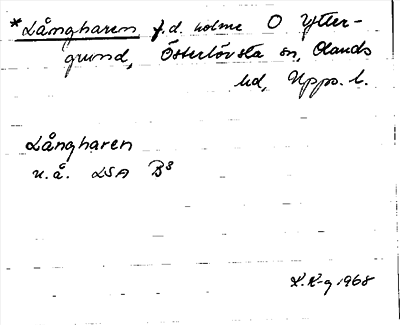 *Långharen f.d. holme O Ytter-
grund, Österlövsta sn, Olands
hd, Upps. l.
Långharen
u.å. LSA B⁸
K.K-g 1968